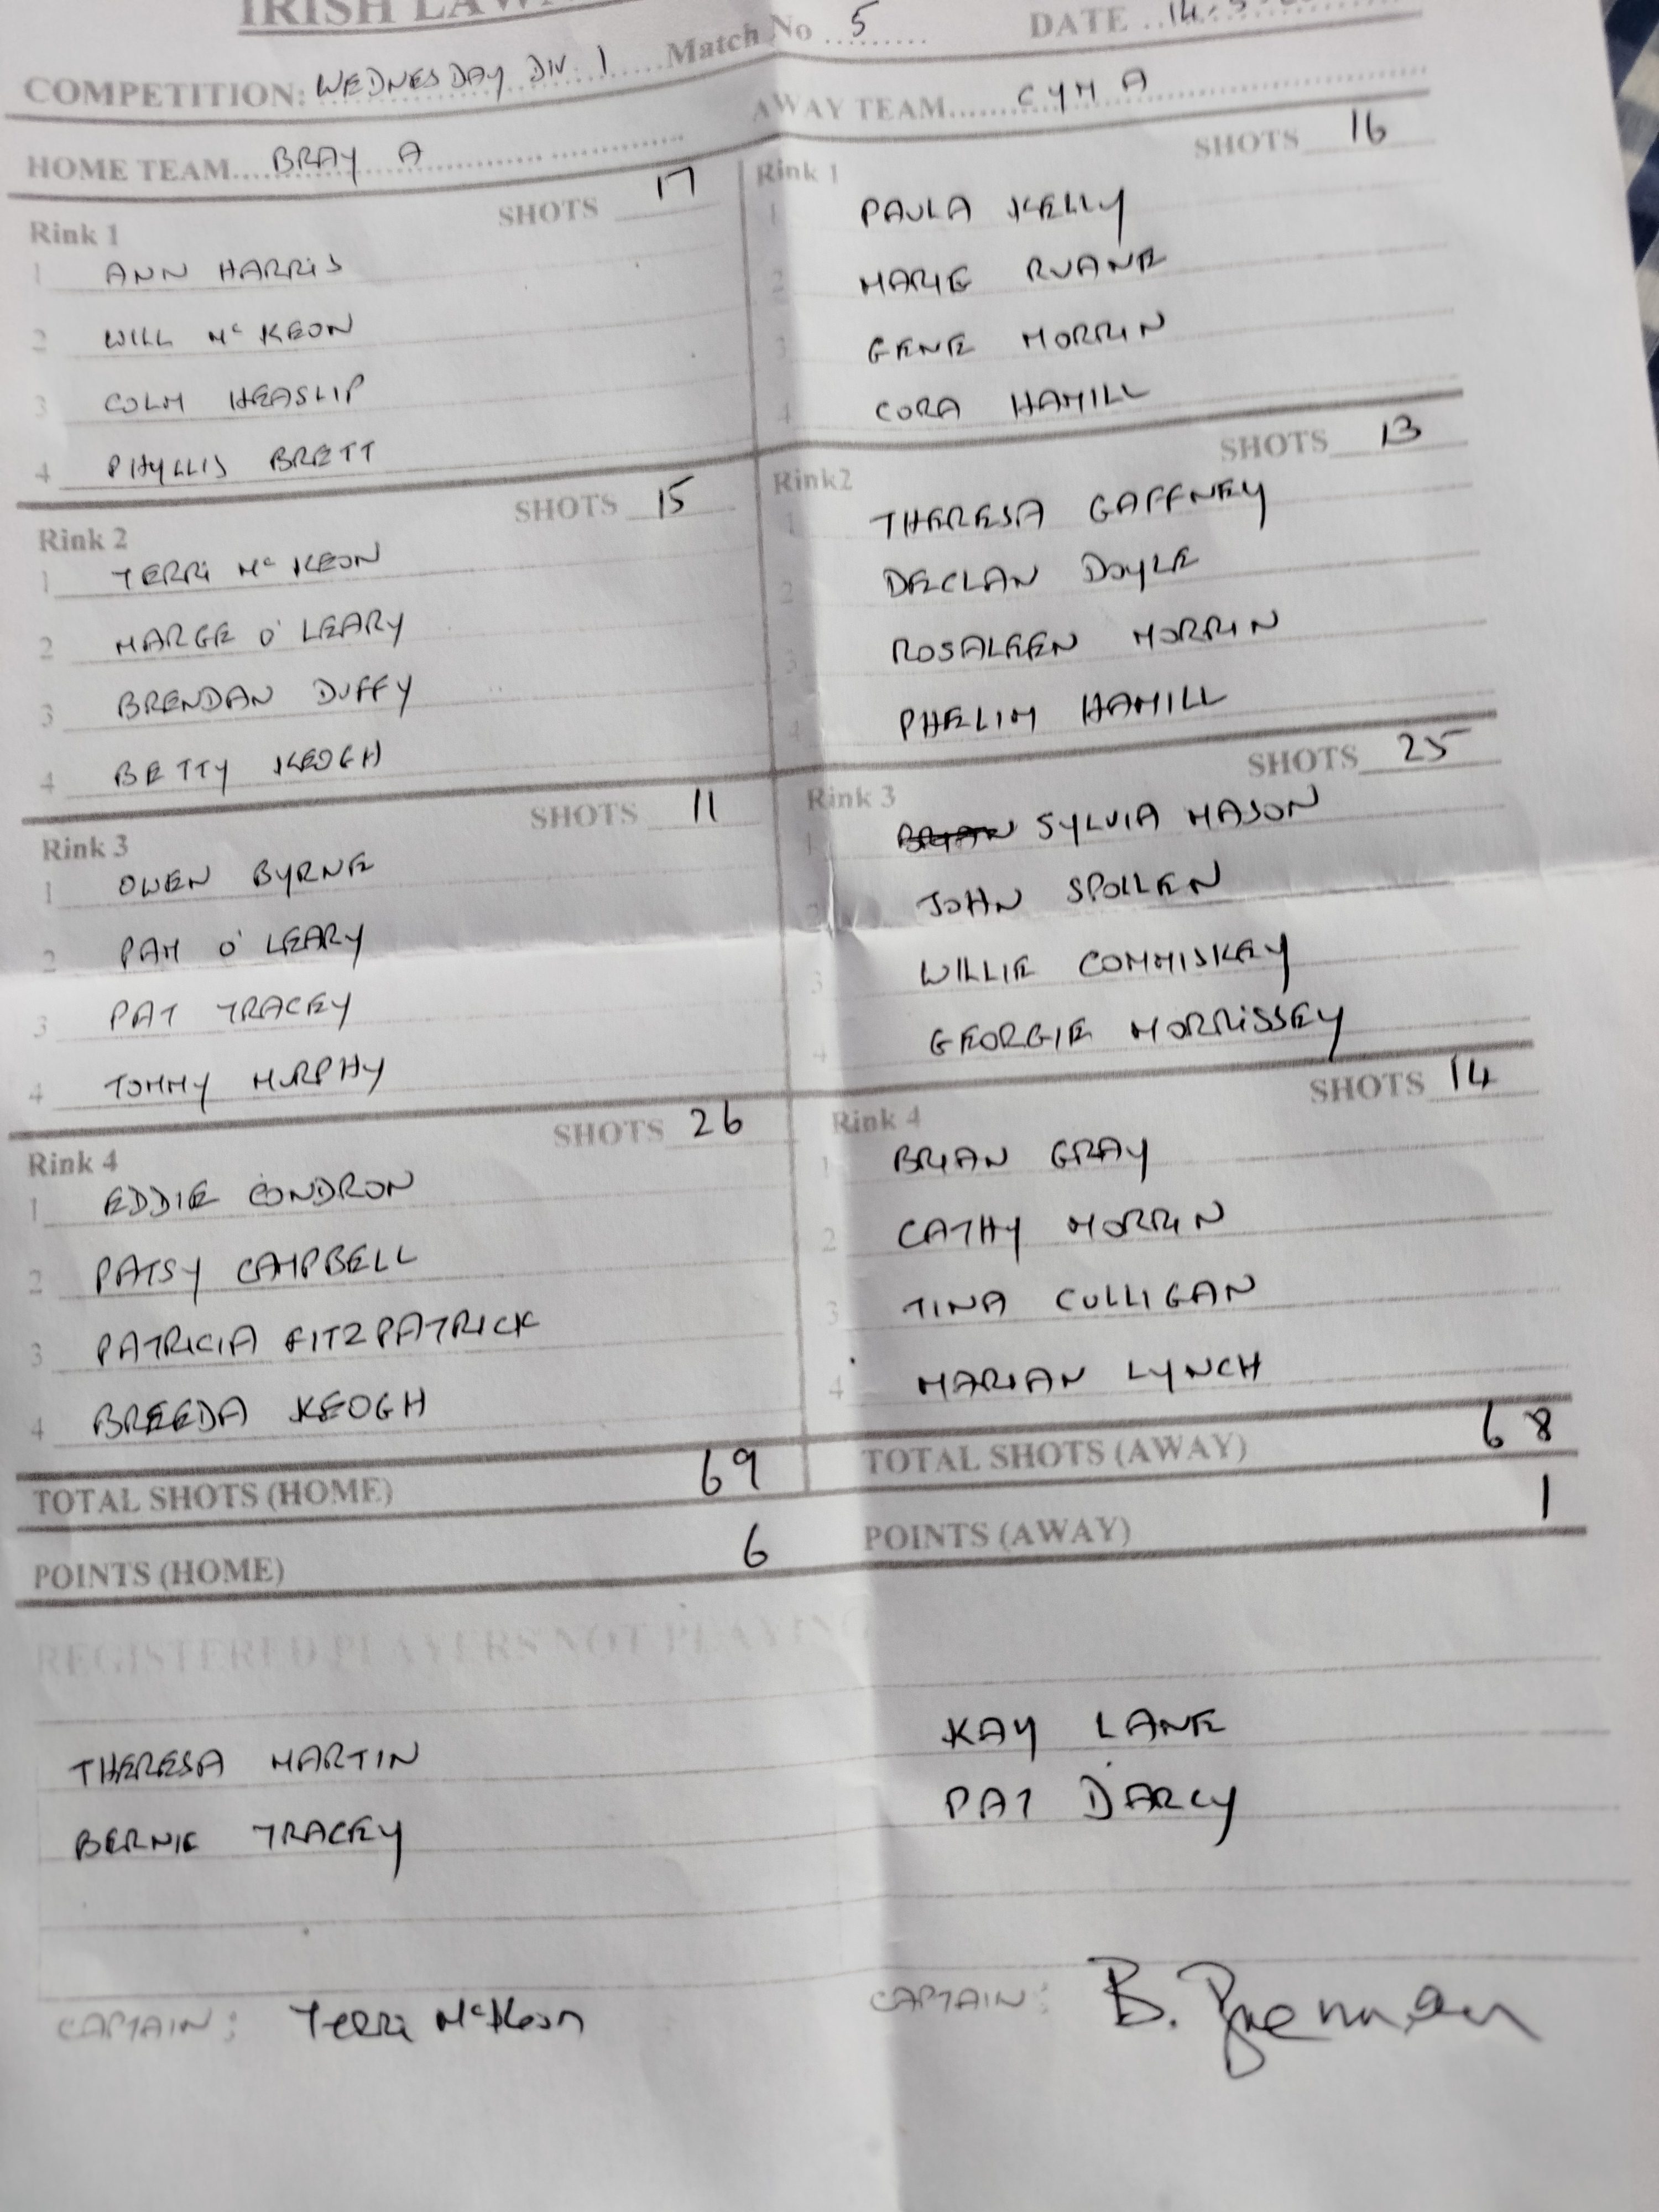 IRISH
COMPETITION: WEDNESDAY DIV. 1 Match No 5 DATE 14.
HOME TEAM BRAY A AWAY TEAM CYM A
Rink 1 SHOTS 17
1 ANN HARRIS
2 WILL McKEON
3 COLM HEASLIP
4 PHYLLIS BRETT
Rink 1 SHOTS 16
1 PAULA KELLY
2 MARIE RUANE
3 GENE MORRIN
4 CORA HAMILL
Rink 2 SHOTS 15
1 TERRI McKEON
2 MARGE O'LEARY
3 BRENDAN DUFFY
4 BETTY KEOGH
Rink2 SHOTS 13
1 THERESA GAFFNEY
2 DECLAN DOYLE
3 ROSALEEN MORRIN
4 PHELIM HAMILL
Rink 3 SHOTS 11
1 OWEN BYRNE
2 PAM O'LEARY
3 PAT TRACEY
4 TOMMY MURPHY
Rink 3 SHOTS 25
1 BRIAN SYLVIA MASON
2 JOHN SPOLLEN
3 WILLIE COMMISKEY
4 GEORGIE MORRISSEY
Rink 4 SHOTS 26
1 EDDIE CONDRON
2 PATSY CAMPBELL
3 PATRICIA FITZPATRICK
4 BREEDA KEOGH
Rink 4 SHOTS 14
1 BRIAN GRAY
2 CATHY MORRIN
3 TINA CULLIGAN
4 MARIAN LYNCH
TOTAL SHOTS (HOME) 69 TOTAL SHOTS (AWAY) 68
POINTS (HOME) 6 POINTS (AWAY) 1
REGISTERED PLAYERS NOT PLAYING
THERESA MARTIN KAY LANE
BERNIE TRACEY PAT D'ARCY
CAPTAIN: Terri McKeon CAPTAIN: B. Brennan